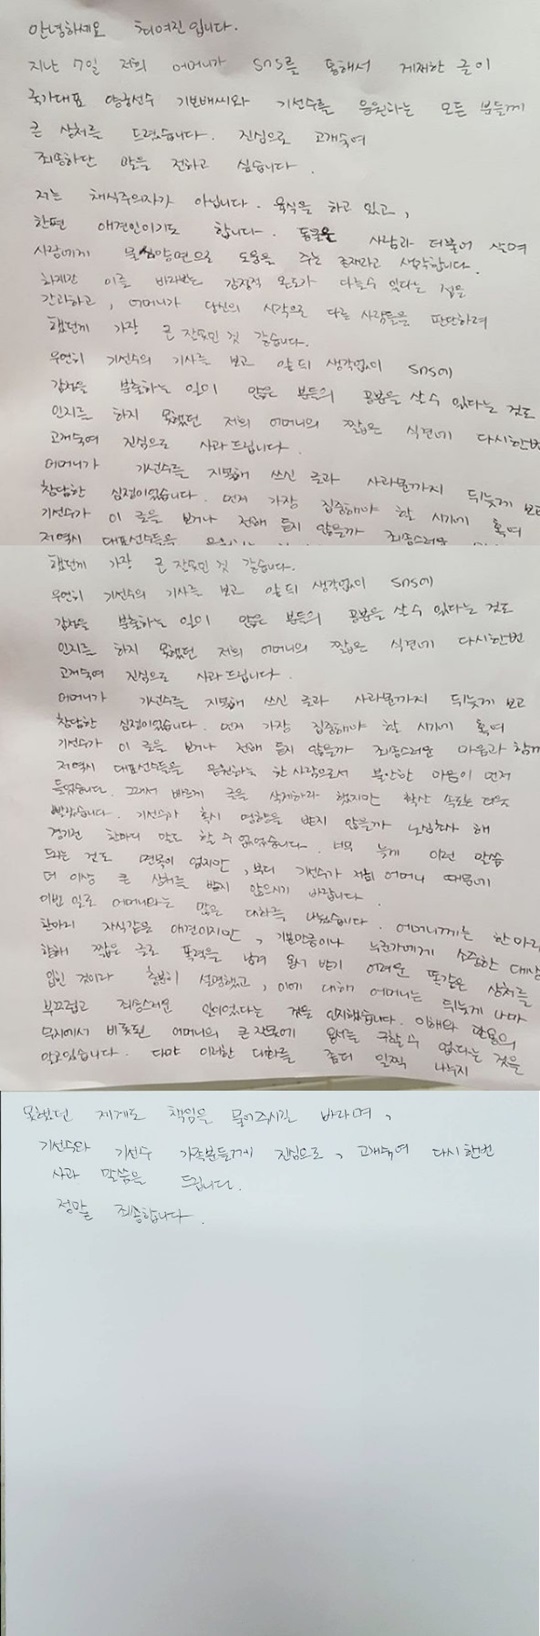 안녕하세요 최여진입니다.
지난 7일 저희 어머니가 SNS를 통해서 게재한 글이
국가대표 양궁선수 기보배씨와 기선수를 응원하는 모든 분들께
큰 상처를 드렸습니다. 진심으로 고개숙여
죄송하단 말을 전하고 싶습니다.
저는 채식주의자가 아닙니다. 육식을 하고 있고,
한편 애견인이기도 합니다. 동물은 사람과 더불어 살며
사람에게 많은 도움을 주는 존재라고 생각합니다.
하지만 이를 바라보는 감정적 온도가 다를수 있다는 점을
간과하고, 어머니가 당신의 시각으로 다른 사람들을 판단하려
했던게 가장 큰 잘못인 것 같습니다.
우연히 기선수의 기사를 보고 앞뒤 생각없이 SNS에
감정을 분출하는 일이 많은 분들의 공분을 살 수 있다는 것도
인지조차 하지 못했던 저희 어머니의 짧은 식견에 다시한번
고개숙여 진심으로 사과드립니다.
어머니가 기선수를 지목해 쓰신 글과 사과문까지 뒤늦게 보고
참담한 심정이었습니다. 먼저 가장 집중해야 할 시기에 혹여
기선수가 이 글을 보거나 전해 듣지 않을까 죄송스러운
저역시 대표선수들을
했던게 가장 큰 잘못인 것 같습니다.
우연히 기선수의 기사를 보고 앞뒤 생각없이 SNS에
감정을 분출하는 일이 많은 분들의 공분을 살 수 있다는 것도
인지조차 하지 못했던 저희 어머니의 짧은 식견에 다시한번
고개숙여 진심으로 사과드립니다.
어머니가 기선수를 지목해 쓰신 글과 사과문까지 뒤늦게 보고
참담한 심정이었습니다. 먼저 가장 집중해야 할 시기에 혹여
기선수가 이 글을 보거나 전해 듣지 않을까 죄송스러운 마음과 함께
저역시 대표선수들을 응원하는 한 사람으로서 불안한 마음이 먼저
들었습니다. 그래서 바르게 글을 삭제하라 했지만 확산 속도는 더욱
빨랐습니다. 기선수가 혹시 영향을 받지 않을까 노심초사 해
경기전 한마디 말도 할 수 없었습니다. 너무 늦게 이런 말씀
드리는 것도 면목이 없지만, 부디 기선수가 저희 어머니 때문에
더 이상 큰 상처를 받지 않으시기 바랍니다.
이번 일로 어머니와는 많은 대화를 나눴습니다. 어머니께는 한마리
한마리 자식같은 애견이지만, 기보배이나 누군가에게 소중한 대상을
향해 짧은 글로 폭력을 남겨 용서 받기 어려운 똑같은 상처를
입힌 것이라 충분히 설명했고, 이에 대해 어머니는 뒤늦게 나마
부끄럽고 죄송스러운 일이었다는 것을 인지했습니다. 이해와 관용의
무지에서 비롯된 어머니의 큰 잘못에 용서를 구할 수 없다는 것을
알고있습니다. 다만 이러한 대화를 좀더 일찍 나누지
못했던 제게도 책임을 물어주시길 바라며,
기선수와 기선수 가족분들게 진심으로, 고개숙여 다시한번
사과 말씀을 드립니다.
정말 죄송합니다.